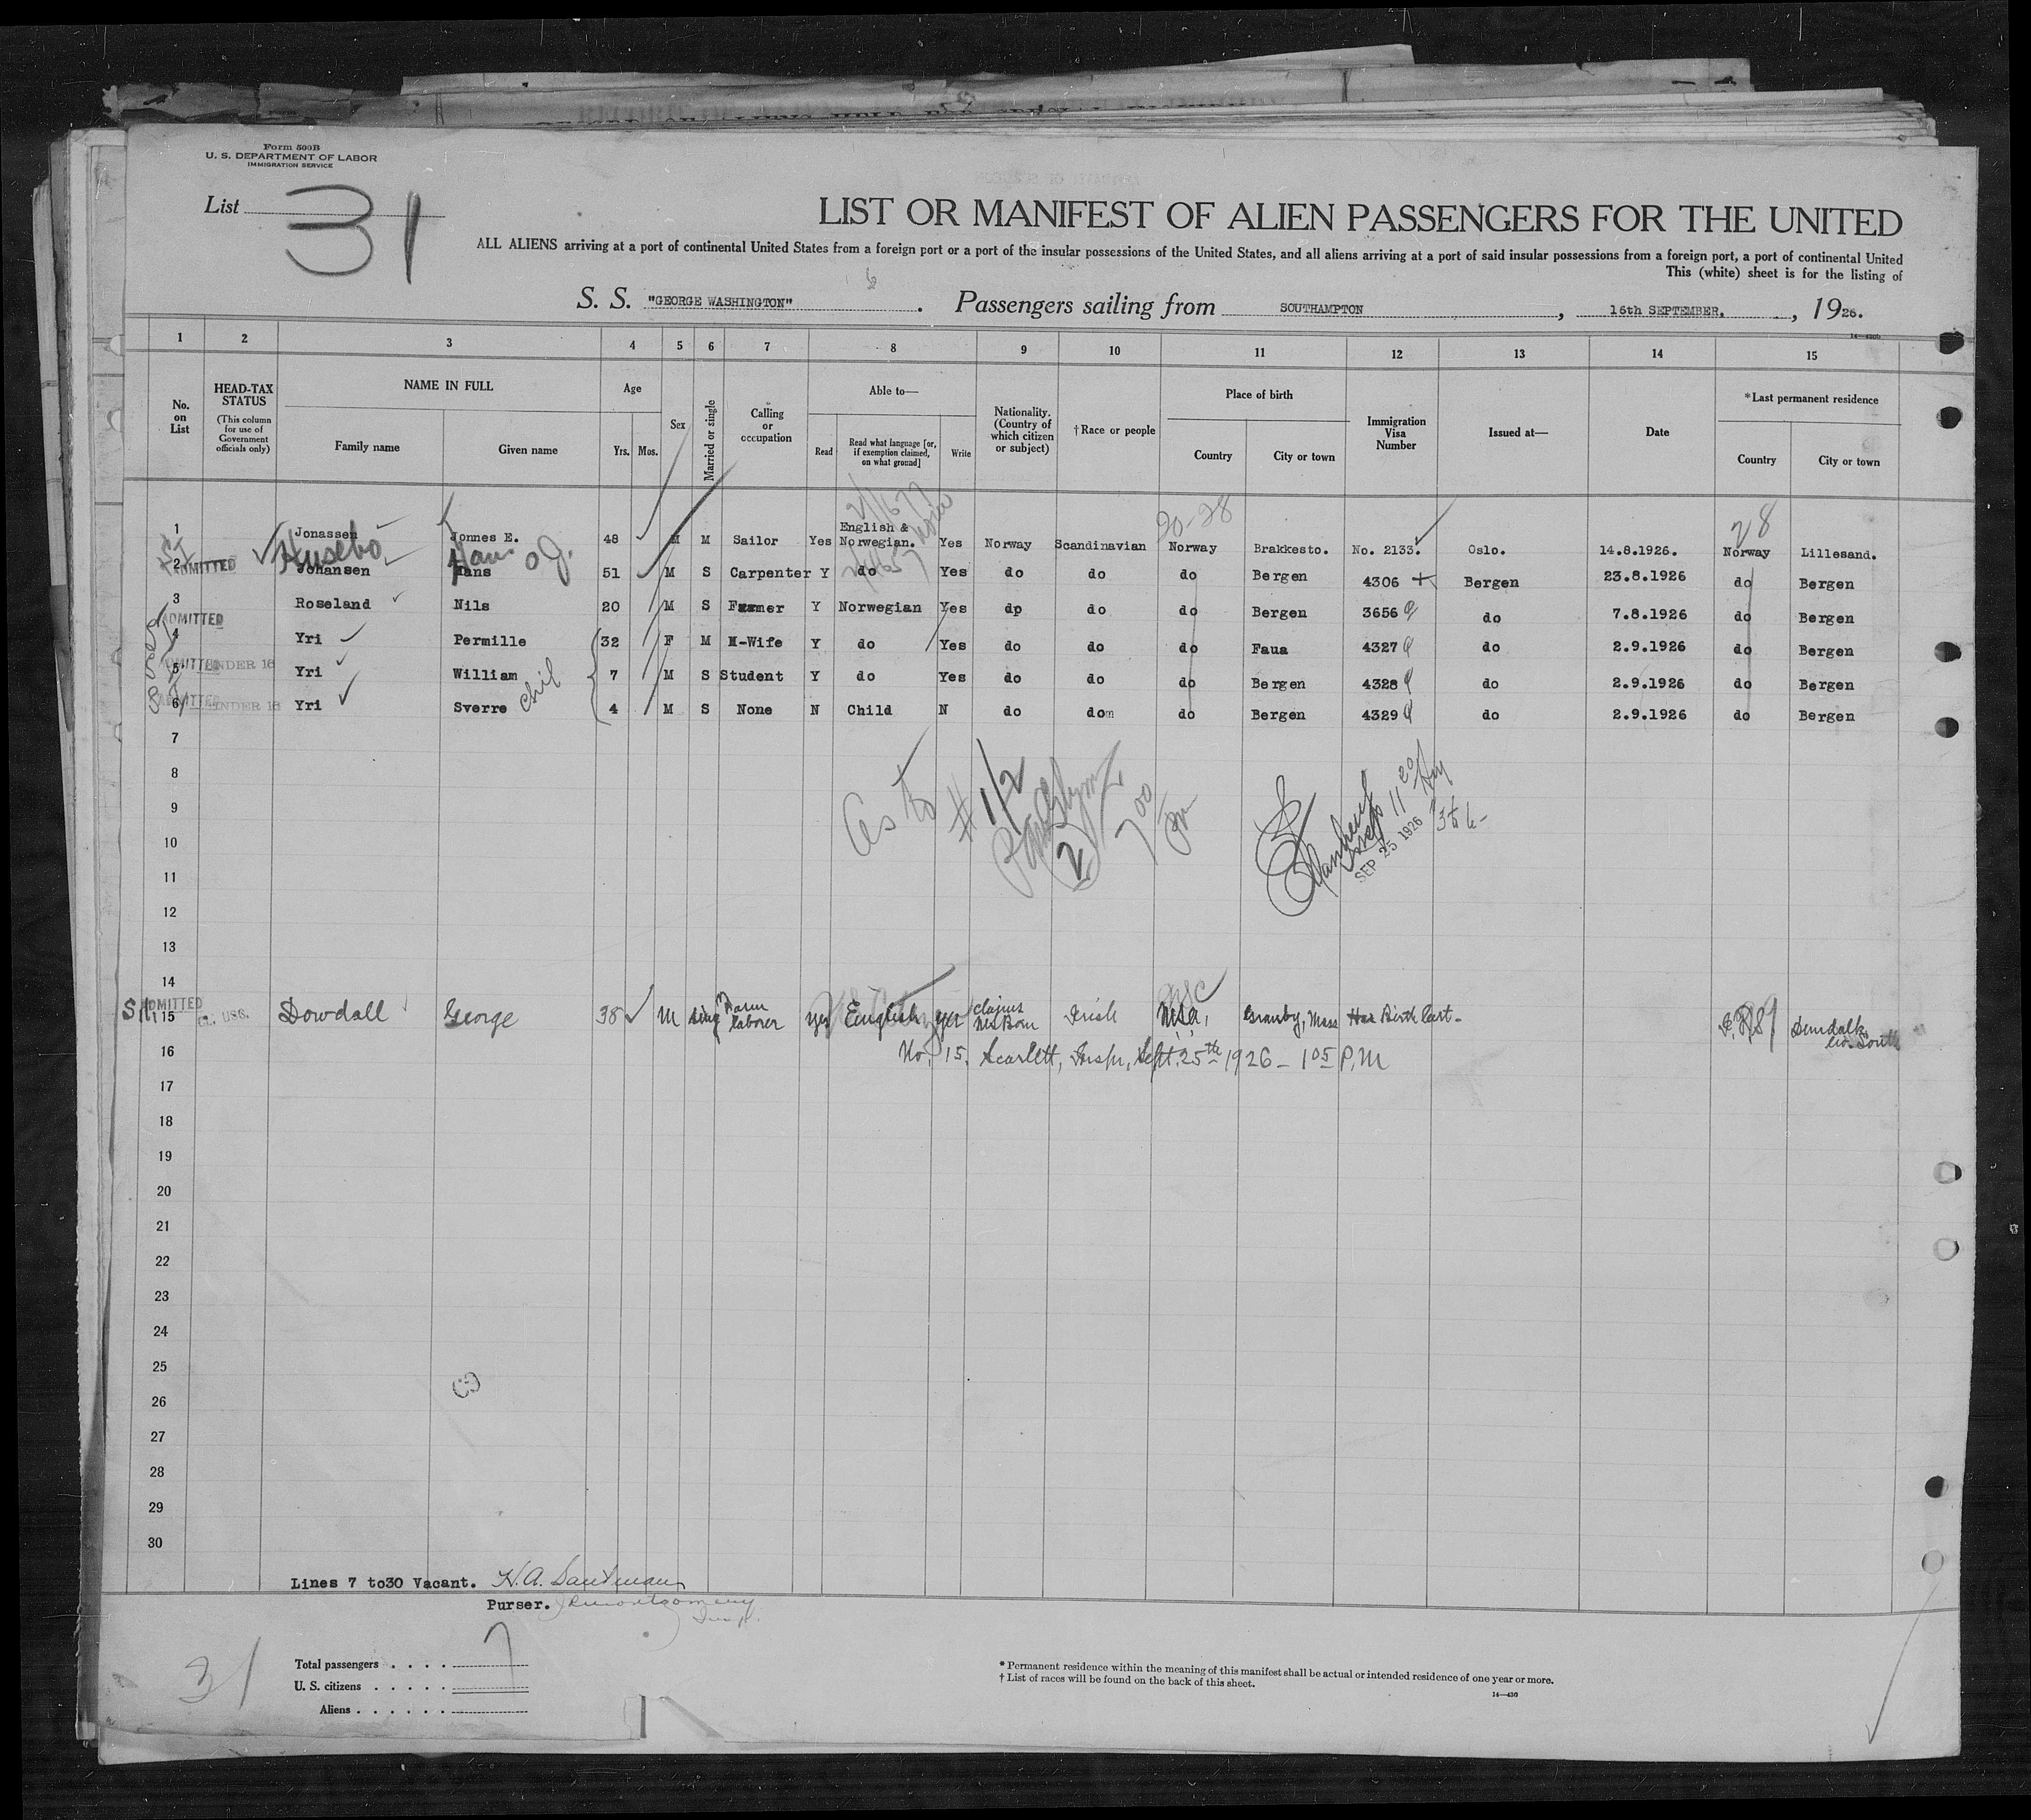 Form 500B
U. S. DEPARTMENT OF LABOR
IMMIGRATION SERVICE
List 31
LIST OR MANIFEST OF ALIEN PASSENGERS FOR THE UNITED
ALL ALIENS arriving at a port of continental United States from a foreign port or a port of the insular possessions of the United States, and all aliens arriving at a port of said insular possessions from a foreign port, a port of continental United
This (white) sheet is for the listing of
S. S. "GEORGE WASHINGTON" . Passengers sailing from SOUTHAMPTON , 16th SEPTEMBER. , 1926.
1 2 3 4 5 6 7 8 9 10 11 12 13 14 15
No. on List
HEAD-TAX STATUS (This column for use of Government officials only)
NAME IN FULL Family name Given name
Age Yrs. Mos.
Sex
Married or single
Calling or occupation
Able to— Read Read what language [or, if exemption claimed, on what ground] Write
Nationality. (Country of which citizen or subject)
†Race or people
Place of birth Country City or town
Immigration Visa Number
Issued at—
Date
*Last permanent residence Country City or town
20-28 28
1 Jonassen Jonnes E. 48 M M Sailor Yes English & Norwegian. Yes Norway Scandinavian Norway Brakkesto. No. 2133. Oslo. 14.8.1926. Norway Lillesand.
Husebo Hans O J.
2 ADMITTED Johansen Hans 51 M S Carpenter Y do Yes do do do Bergen 4306 Bergen 23.8.1926 do Bergen
3 ADMITTED Roseland Nils 20 M S Farmer Y Norwegian Yes dp do do Bergen 3656 do 7.8.1926 do Bergen
4 Yri Permille 32 F M H-Wife Y do Yes do do do Faua 4327 do 2.9.1926 do Bergen
5 ADMITTED UNDER 16 Yri William 7 M S Student Y do Yes do do do Bergen 4328 do 2.9.1926 do Bergen
6 ADMITTED UNDER 16 Yri Sverre chil 4 M S None N Child N do do do Bergen 4329 do 2.9.1926 do Bergen
7
8
9
10
11
12
13
14
as to # 1/2
2
7 00
SEP 25 1926
SI ADMITTED 15 Dowdall George 38 M sing Farm laborer yes English yes claims US Born Irish USA, Granby, Mass Has Birth Cert- Dundalk
16 No. 15, Scarlett, Inspr, Sept. 25th 1926 - 1 05 P.M
17
18
19
20
21
22
23
24
25
26
27
28
29
30
Lines 7 to30 Vacant. H.A. Sandmann
Purser. JR Montgomery
Insp.
31
Total passengers . . . . 7
U. S. citizens . . . . .
Aliens . . . . . .
* Permanent residence within the meaning of this manifest shall be actual or intended residence of one year or more.
† List of races will be found on the back of this sheet.
14—430